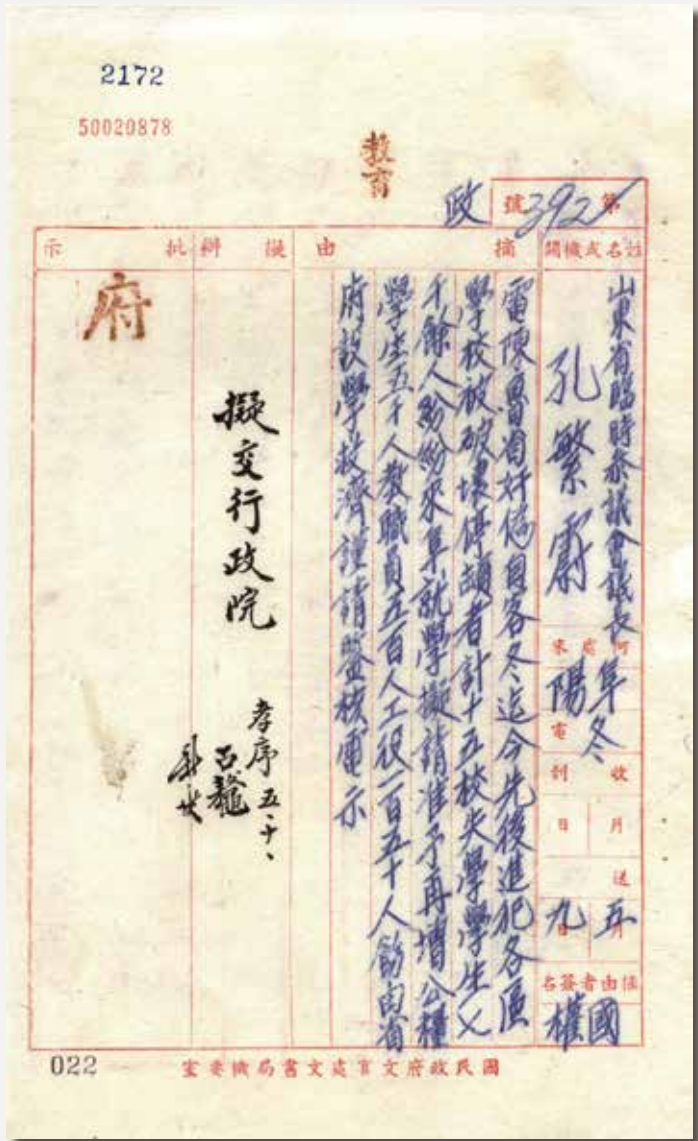 2172
50020878
教育
政
第392號
姓名或機關
摘由
擬辦
批示
山東省臨時參議會議長
孔繁霨
何處來電
阜陽
冬
收到
月
日
送
五月
九日
摘由者簽名
國權
電陳魯省奸偽自客冬迄今先後進犯各區
學校被破壞停頓者計十五校失學學生七
千餘人紛紛來阜就學擬請准予再增公糧
學生五千人教職員五百人工役二百五十人飭由省
府設學救濟謹請鑒核電示
擬交行政院
孝序 五、十、
府
國民政府文官處文書局機要室
022